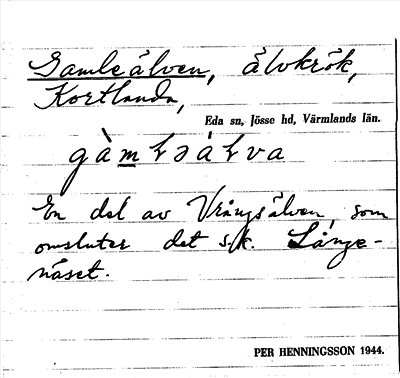 Gamleälven, älvkrök,
Kortlanda,
Eda sn, Jösse hd, Värmlands län.
gàmłəáłva
En del av Vrångsälven, som
omsluter det s.k. Långe-
näset.
PER HENNINGSSON 1944.